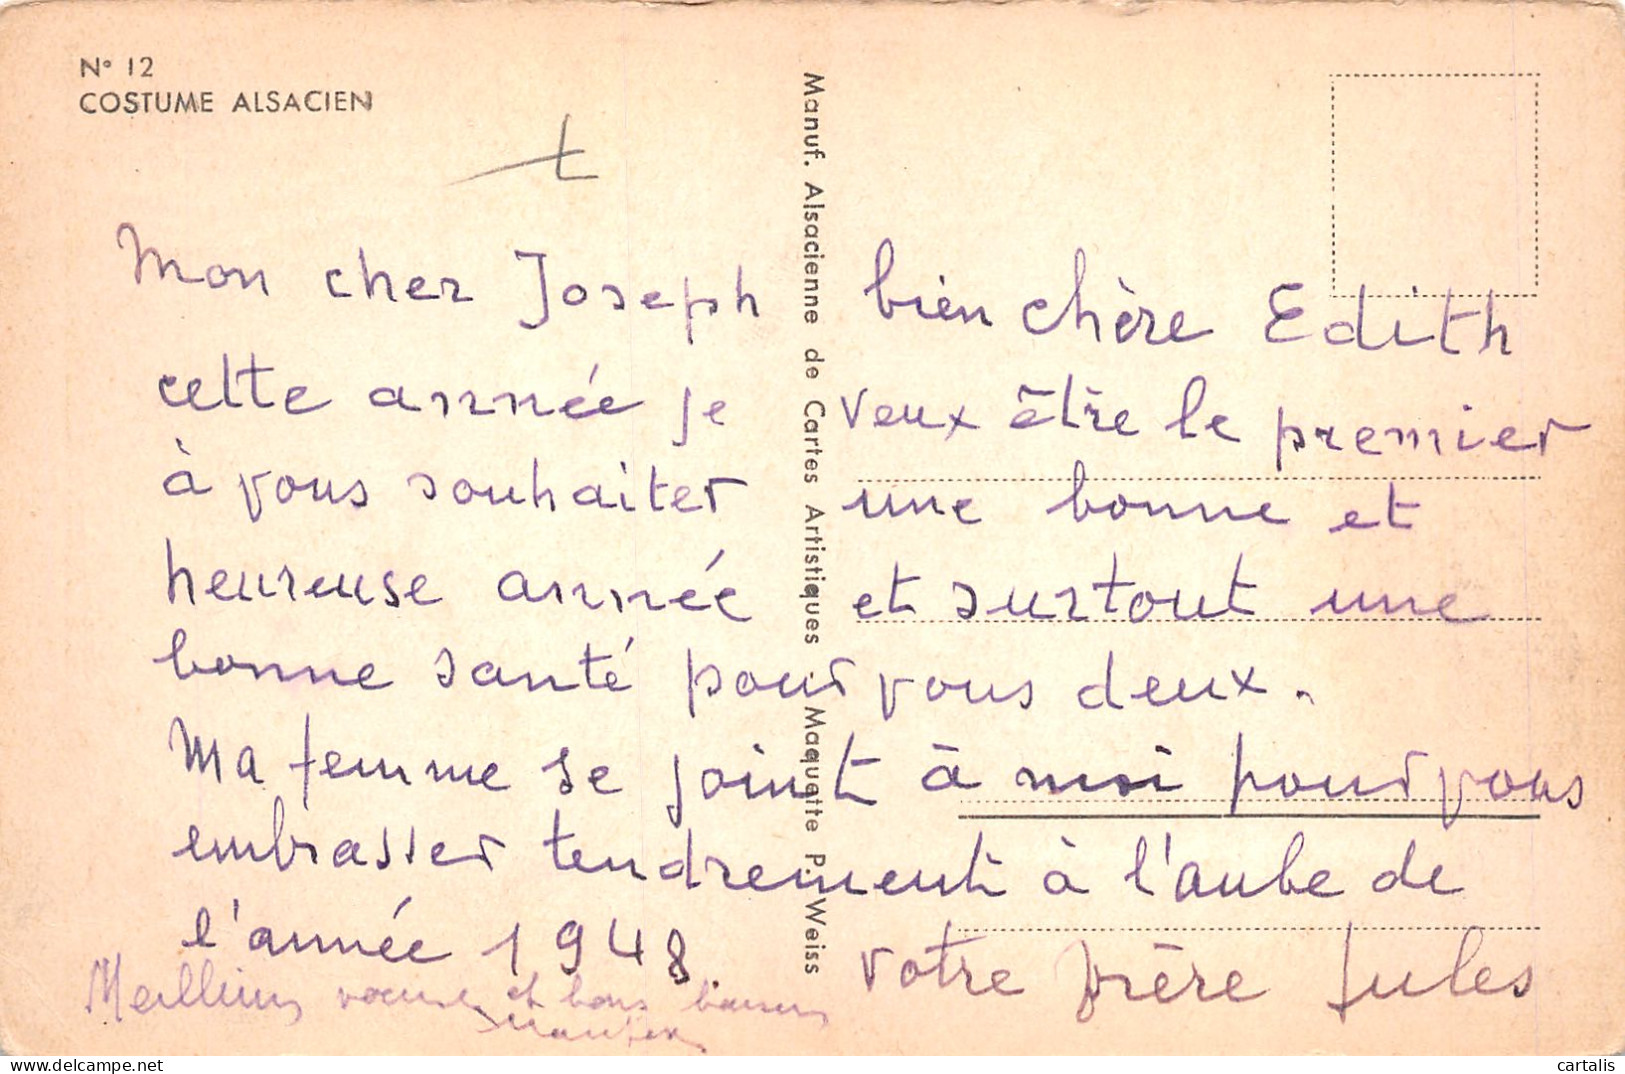 N° 12
COSTUME ALSACIEN
Manuf. Alsacienne de Cartes Artistiques Maquette P. Weiss
Mon cher Joseph bien chère Edith
cette année je veux être le premier
à vous souhaiter une bonne et
heureuse année et surtout une
bonne santé pour vous deux.
Ma femme se joint à moi pour vous
embrasser tendrement à l'aube de
l'année 1948. votre frère Jules
Meilleurs voeux et bons baisers
cartalis